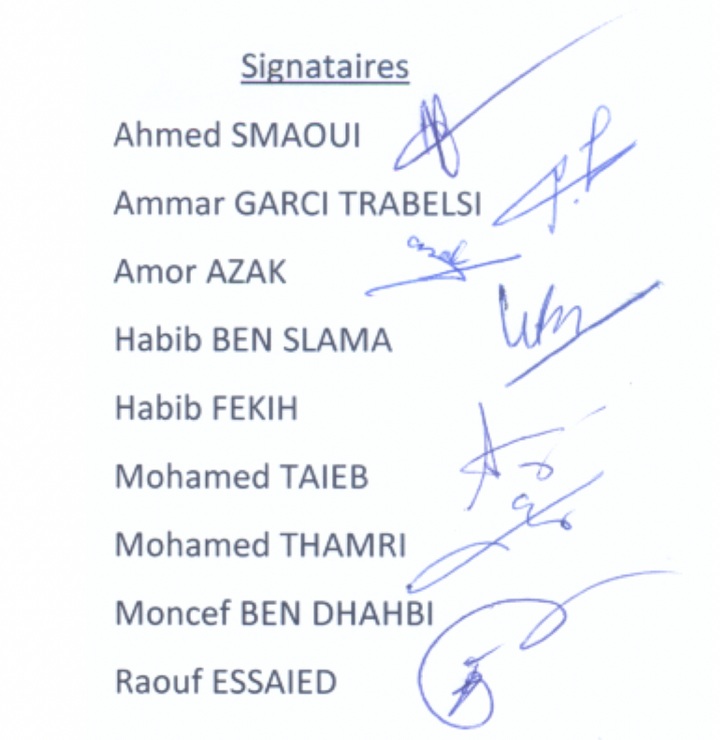 Signataires
Ahmed SMAOUI
Ammar GARCI TRABELSI
Amor AZAK
Habib BEN SLAMA
Habib FEKIH
Mohamed TAIEB
Mohamed THAMRI
Moncef BEN DHAHBI
Raouf ESSAIED